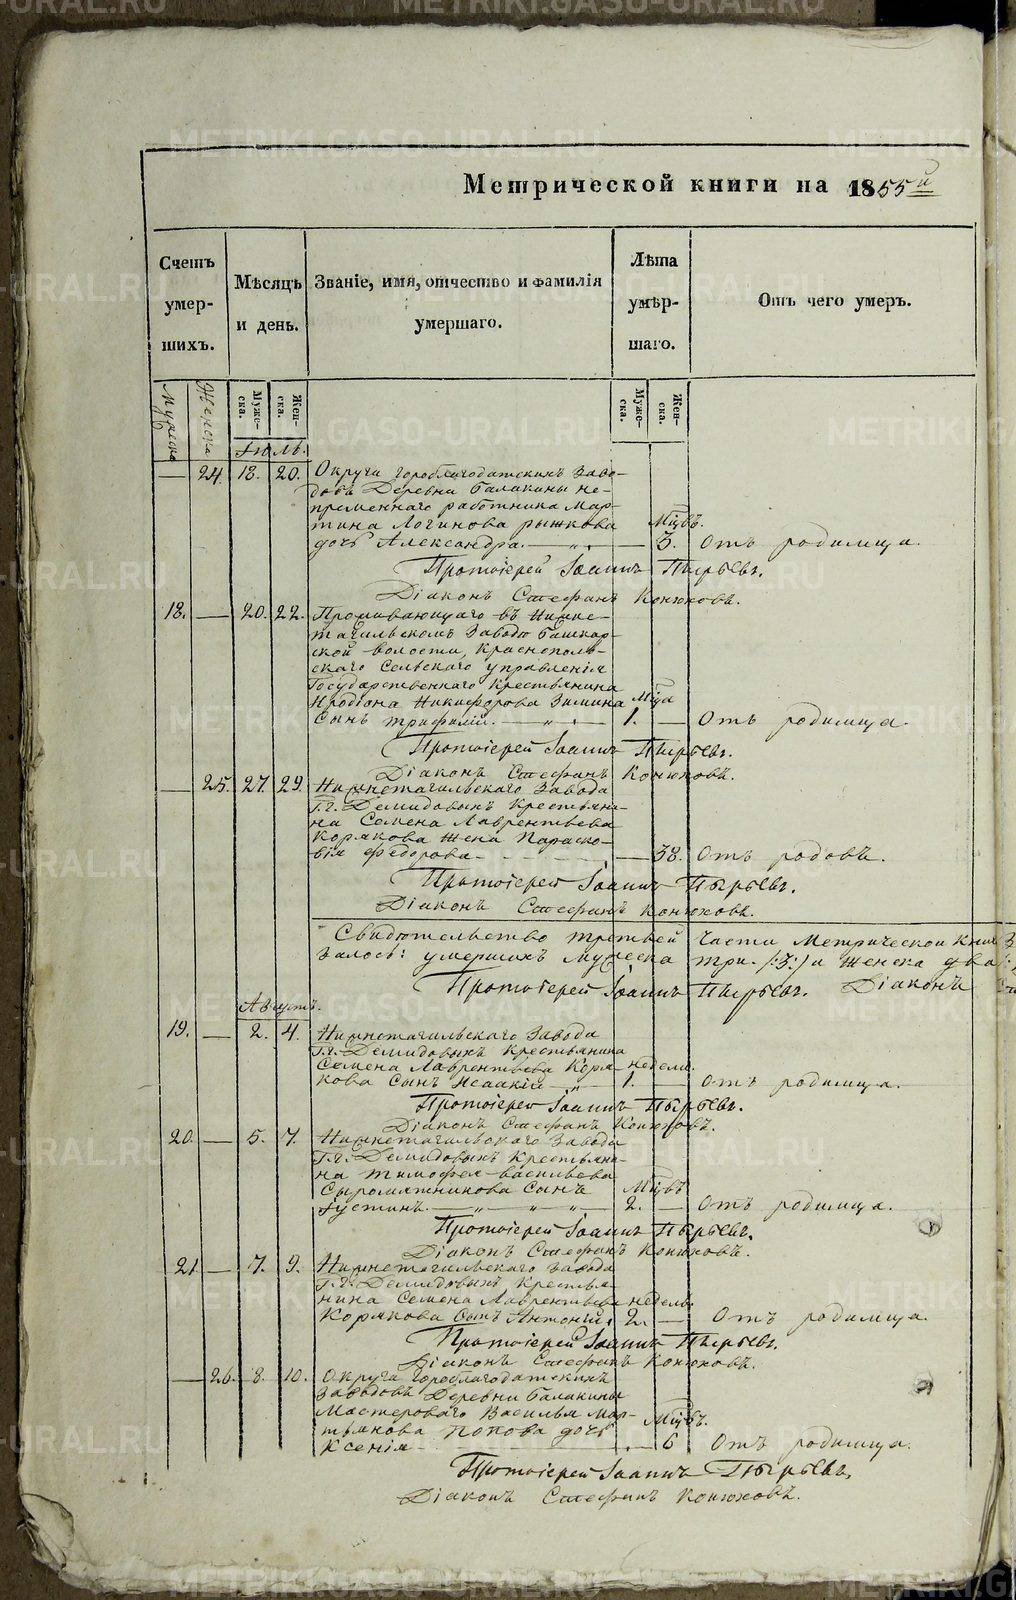 Метрической книги на 1855й
Счетъ умершихъ.
Мѣсяцъ и день.
Званіе, имя, отчество и фамилія умершаго.
Лѣта умѣршаго.
Отъ чего умеръ.
Мужеска Женска
Мужеска. Женска.
Мужеска. Женска.
Іюль.
— 24. 18. 20. Округа Гороблагодатскихъ Заво-
довъ Деревни Балакины не-
пременнаго работника Мар-
тина Логинова рыжкова Мцвъ.
дочь Александра. — 3. Отъ родимца.
Протоіерей Іоаннъ Пырьевъ.
Діаконъ Стефанъ Конюховъ.
18. — 20. 22. Проживающаго въ Нижне-
тагильскомъ Заводѣ Башкар-
ской волости, Краснополь-
скаго Сельскаго управленія
Государственнаго Крестьянина
Иродіона Никифорова Зимина Мца
сынъ Трифилій. — 1. — Отъ родимца.
Протоіерей Іоаннъ Пырьевъ.
Діаконъ Стефанъ Конюховъ.
— 25. 27. 29. Нижнетагильскаго Завода
Г.г. Демидовыхъ Крестьяни-
на Семена Лаврентьева
Корякова жена Параско-
вія Федорова — 38. Отъ родовъ.
Протоіерей Іоаннъ Пырьевъ.
Діаконъ Стефанъ Конюховъ.
Свидѣтельство третьей части Метрической Книг
залось: умершихъ Мужеска три /:3:/ и женска два
Протоіерей Іоаннъ Пырьевъ. Діаконъ
Августъ.
19. — 2. 4. Нижнетагильскаго Завода
Г.г. Демидовыхъ Крестьянина
Семена Лаврентьева Коря- недели.
кова сынъ Исаакій — 1. — Отъ родимца.
Протоіерей Іоаннъ Пырьевъ.
Діаконъ Стефанъ Конюховъ.
20. — 5. 7. Нижнетагильскаго Завода
Г.г. Демидовыхъ Крестьяни-
на Тимофея Васильева
Сыромятникова сынъ Мцвъ
Іустинъ. — 2. — Отъ родимца.
Протоіерей Іоаннъ Пырьевъ.
Діаконъ Стефанъ Конюховъ.
21. — 7. 9. Нижнетагильскаго Завода
Г.г. Демидовыхъ Крестья-
нина Семена Лаврентьева недель.
Корякова сынъ Антоній. 2. — Отъ родимца.
Протоіерей Іоаннъ Пырьевъ.
Діаконъ Стефанъ Конюховъ.
— 26. 8. 10. Округа Гороблагодатскихъ
Заводовъ Деревни Балакины
Мастероваго Василья Мар-
тьянова Попова дочь Мцвъ.
Ксенія — 6 Отъ родимца.
Протоіерей Іоаннъ Пырьевъ.
Діаконъ Стефанъ Конюховъ.
METRIKI.GASO-URAL.RU